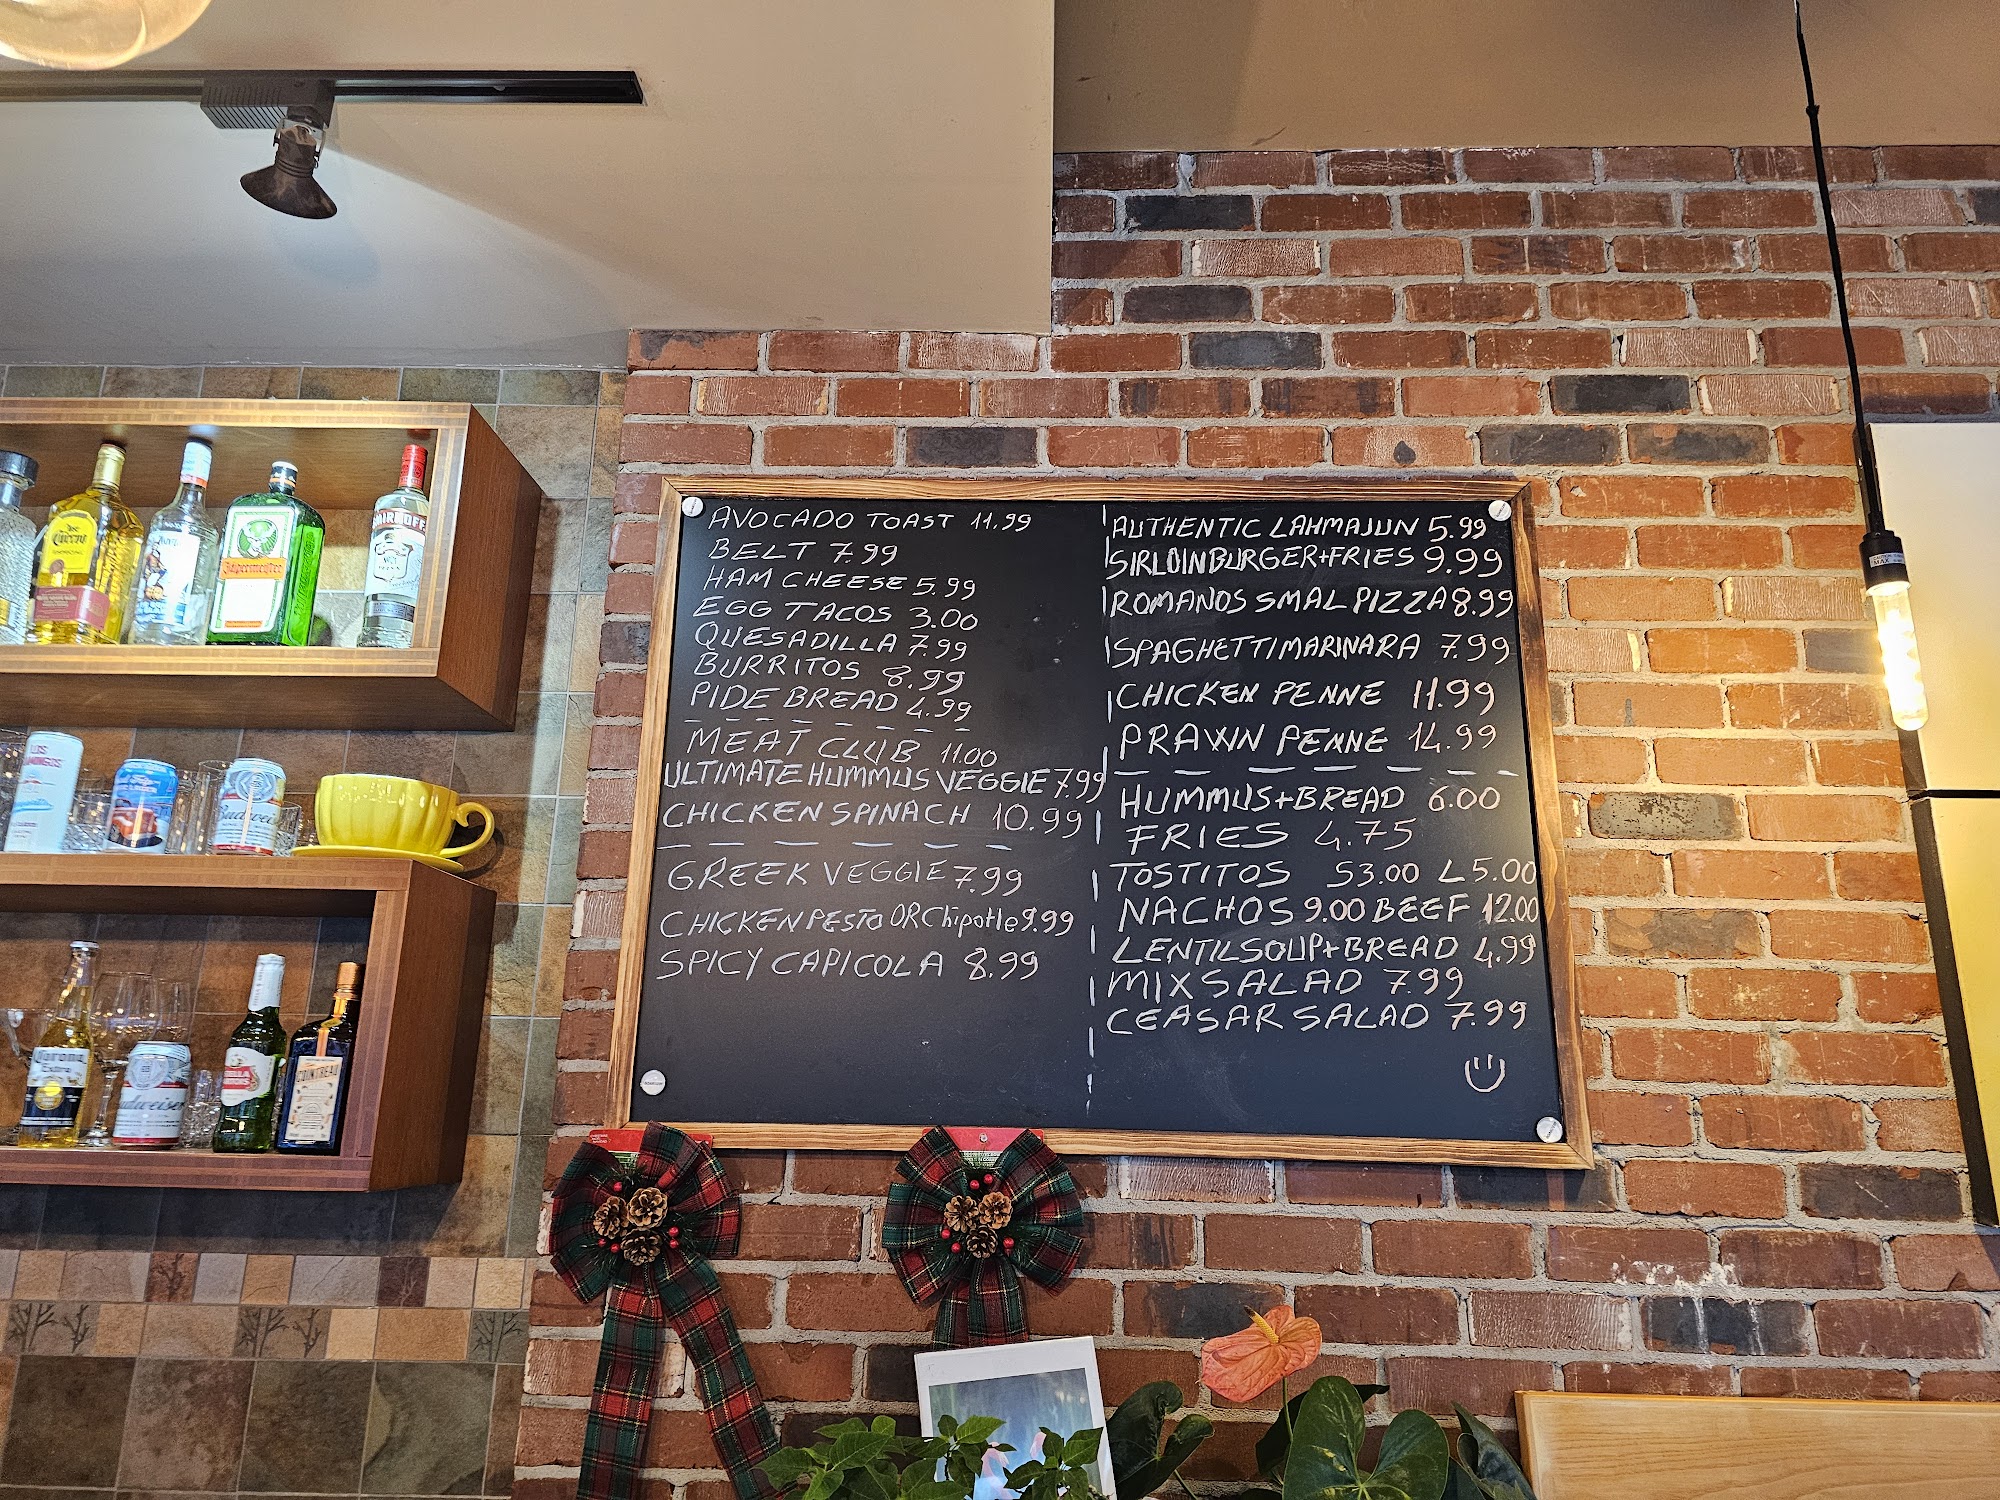 AVOCADO TOAST 11.99
BELT 7.99
HAM CHEESE 5.99
EGG TACOS 3.00
QUESADILLA 7.99
BURRITOS 8.99
PIDE BREAD 4.99
MEAT CLUB 11.00
ULTIMATE HUMMUS VEGGIE 7.99
CHICKEN SPINACH 10.99
GREEK VEGGIE 7.99
CHICKEN PESTO OR Chipotle 9.99
SPICY CAPICOLA 8.99
AUTHENTIC LAHMAJUN 5.99
SIRLOIN BURGER+FRIES 9.99
ROMANOS SMAL PIZZA 8.99
SPAGHETTI MARINARA 7.99
CHICKEN PENNE 11.99
PRAWN PENNE 14.99
HUMMUS+BREAD 6.00
FRIES 4.75
TOSTITOS S3.00 L5.00
NACHOS 9.00 BEEF 12.00
LENTIL SOUP+BREAD 4.99
MIX SALAD 7.99
CEASAR SALAD 7.99
Cuervo
Jägermeister
SMIRNOFF
Budweiser
Corona
Extra
Budweiser
STELLA
COINTREAU